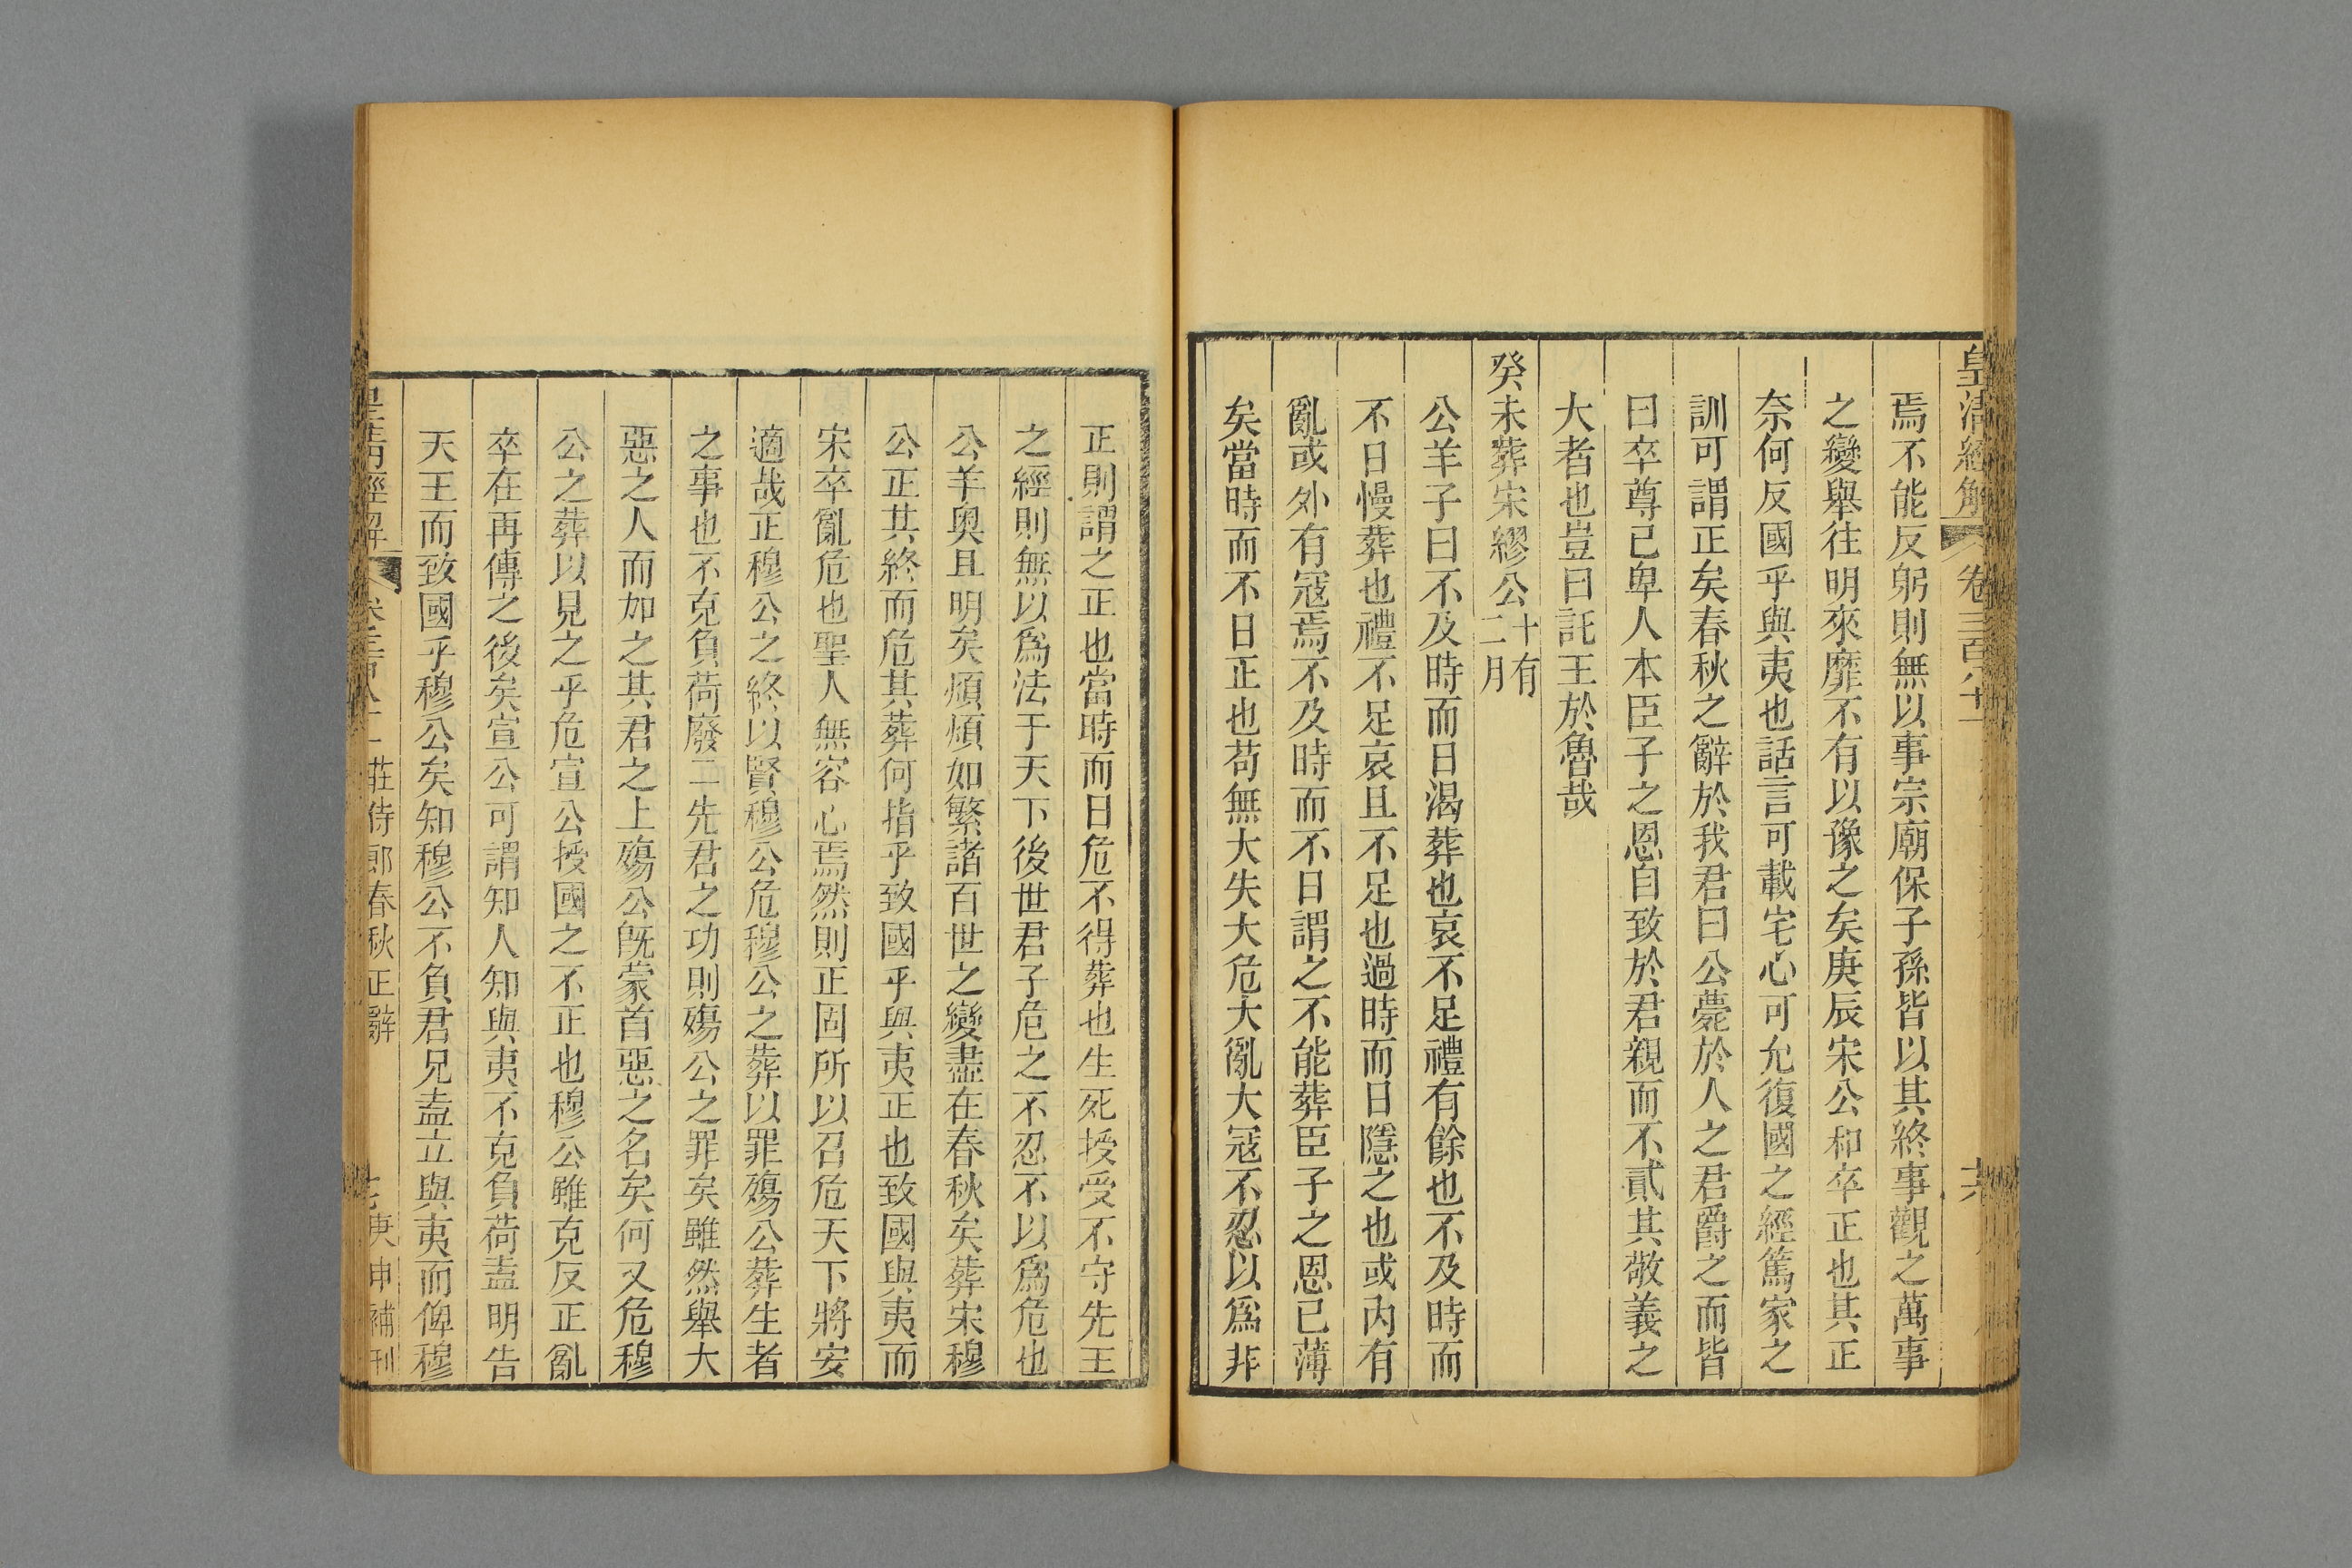 皇清經解 卷三百八十 六
焉不能反躬則無以事宗廟保子孫皆以其終事觀之萬事
之變舉往明來靡不有以豫之矣庚辰宋公和卒正也其正
奈何反國乎與夷也話言可載宅心可允復國之經篤家之
訓可謂正矣春秋之辭於我君曰公薨於人之君爵之而皆
曰卒尊己卑人本臣子之恩自致於君親而不貳其敬義之
大者也豈曰託王於魯哉
癸未葬宋繆公十有二月
公羊子曰不及時而日渴葬也哀不足禮有餘也不及時而
不日慢葬也禮不足哀且不足也過時而日隱之也或內有
亂或外有寇焉不及時而不日謂之不能葬臣子之恩已薄
矣當時而不日正也苟無大失大危大亂大寇不忍以爲非
正則謂之正也當時而日危不得葬也生死授受不守先王
之經則無以爲法于天下後世君子危之不忍不以爲危也
公羊奧且明矣煩煩如繁諸百世之變盡在春秋矣葬宋穆
公正其終而危其葬何指乎致國乎與夷正也致國與夷而
宋卒亂危也聖人無容心焉然則正固所以召危天下將安
適哉正穆公之終以賢穆公危穆公之葬以罪殤公葬生者
之事也不克負荷廢二先君之功則殤公之罪矣雖然舉大
惡之人而加之其君之上殤公旣蒙首惡之名矣何又危穆
公之葬以見之乎危宣公授國之不正也穆公雖克反正亂
卒在再傳之後矣宣公可謂知人知與夷不克負荷盍明告
天王而致國乎穆公矣知穆公不負君兄盍立與夷而俾穆
皇清經解 莊侍郎春秋正辭 七 庚申補刊